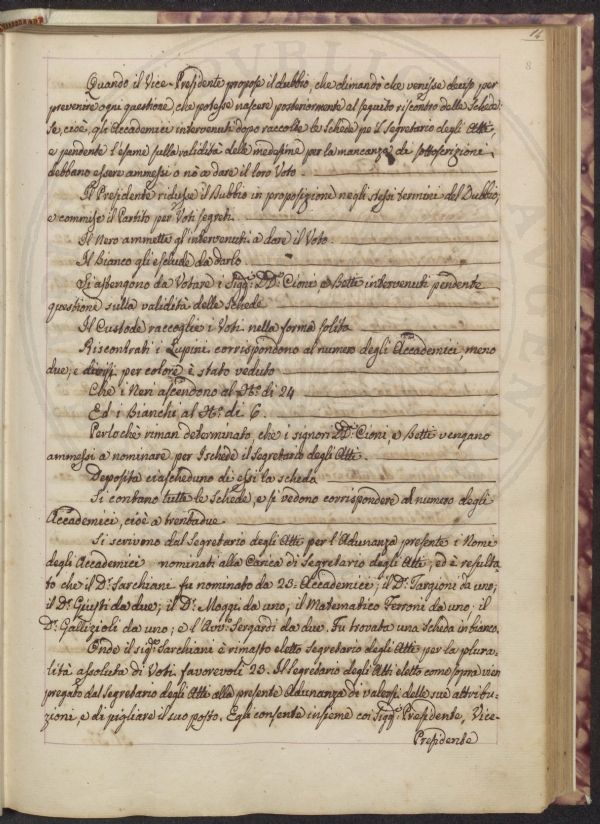 14
8
Quando il Vice-Presidente propose il dubbio, che dimandò che venisse deciso per
prevenire ogni questione, che potesse nascere posteriormente al seguito riscontro delle Schede
se, cioè, gli Accademici intervenuti dopo raccolte le schede pe'l Segretario degli Atti,
e pendente l'esame sulla validità delle medesime per la mancanza di sottoscrizioni,
debbano essere ammessi o nò a dare il loro Voto.
Il Presidente ridusse il Dubbio in proposizione negli stessi termini del Dubbio,
e commise il Partito per Voti segreti.
Il Nero ammette gl'intervenuti a dare il Voto
Il Bianco gli esclude da darlo
Si astengono da Votare i Sigg.i DD.i Cioni, e Betti intervenuti pendente
questione sulla validità delle Schede
Il Custode raccoglie i Voti nella forma solita
Riscontrati i Lupini corrispondono al numero degli Accademici, meno
due, e divisi per colore è stato veduto
Che i Neri ascendono al N.o di 24
Ed i Bianchi al N.o di 6
Perlochè riman determinato, che i signori DD.i Cioni, e Betti vengano
ammessi a nominare per Ischede il Segretario degli Atti.
Deposita ciascheduno di essi la scheda
Si contano tutte le Schede, e si vedono corrispondere al numero degli
Accademici, cioè a trentadue
Si scrivono dal Segretario degli Atti per l'Adunanza presente i Nomi
degli Accademici nominati alla Carica di Segretario degli Atti, ed è resulta
to che il D.r Sarchiani fu nominato da 23. Accademici; il D.r Targioni da uno;
il D.r Giusti da due; il D.r Moggi da uno; il Matematico Ferroni da uno; il
D.r Gallizioli da uno; e l'Avv.o Sergardi da due. Fu trovata una Scheda in bianco.
Onde il sig.r Sarchiani è rimasto eletto Segretario degli Atti per la plura-
lità assoluta di Voti favorevoli 23. Il Segretario degli Atti eletto come sopra vien
pregato dal Segretario degli Atti alla presente Adunanza di valersi delle sue attribu-
zioni, e di pigliare il suo posto. Egli consente insieme coi Sigg.i Presidente, Vice-
Presidente